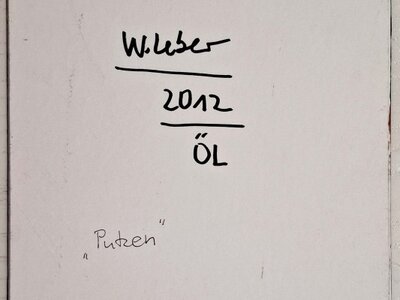 W. Leber
2012
ÖL
„Putzen"